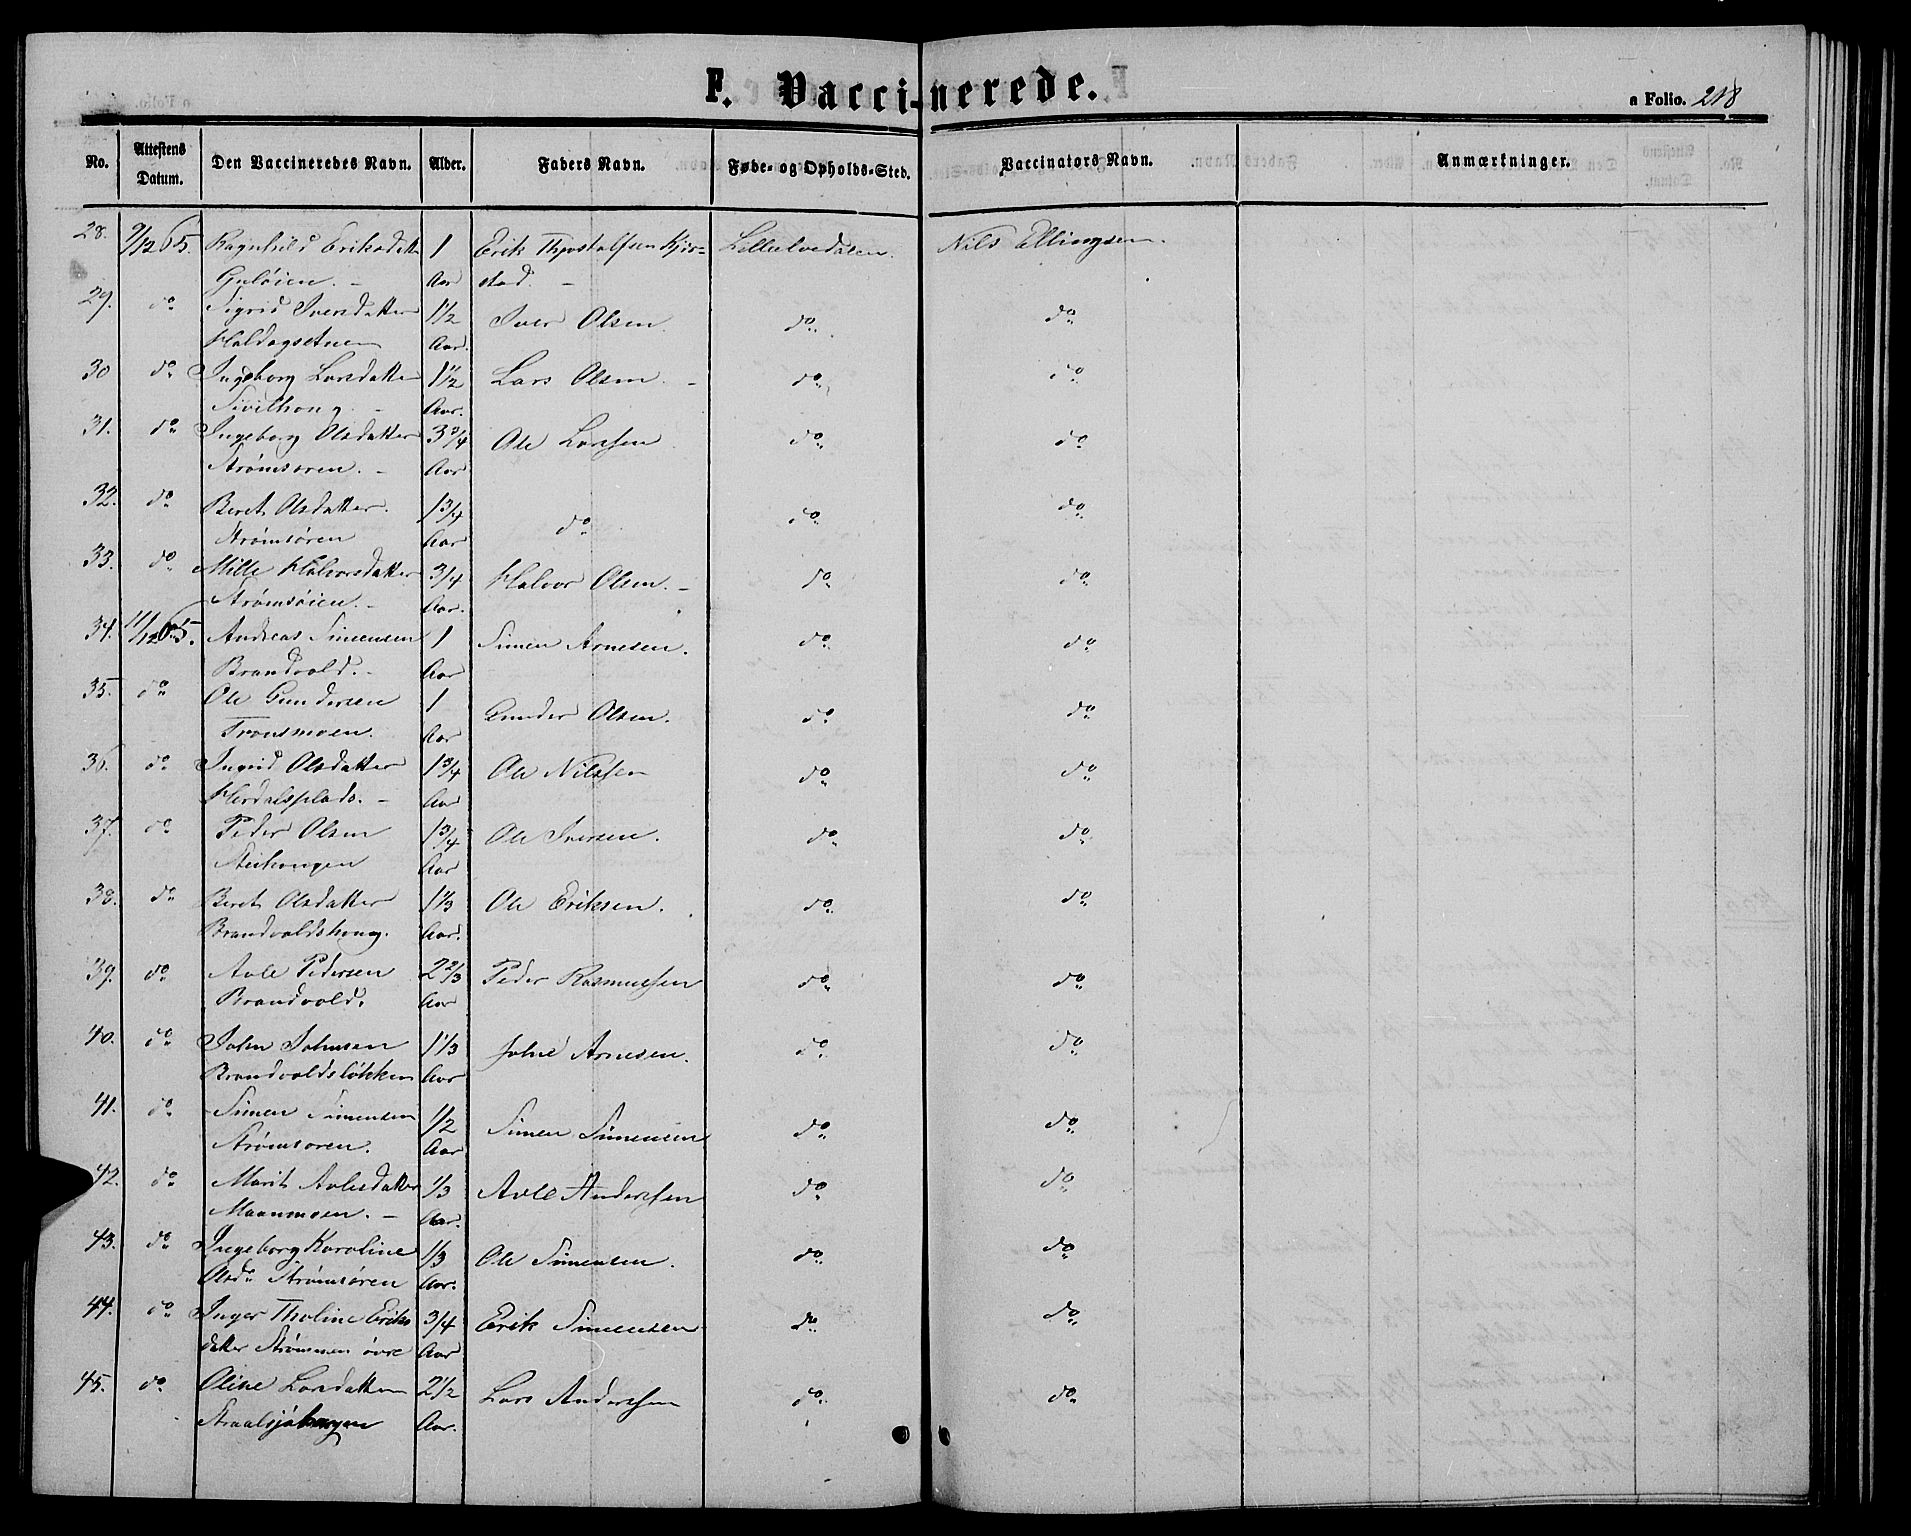 F. Vaccinerede.
a Folio. 218
No. Attestens Datum. Den Vaccineredes Navn. Alder. Faders Navn. Føde- og Opholds-Sted. Vaccinators Navn. Anmærkninger.
28. 9/12 65. Ragnhild Eriksdatt 1 Erik Lillelvedalen. Nils Ellingsen.
Aar stad.
29. do Sigrid Iversdatter 1 1/2 Iver Olsen. do do
Aar.
30 do Ingeborg Larsdatter 1 1/2 Lars Olsen. do do
Aar.
31. do Ingeborg Olsdatter 3 3/4 Ole Larsen do do
Strømsøren. Aar
32. do Beret Olsdatter. 1 3/4 do do do
Strømsøren Aar
33. do Mille Halvorsdatter 3/4 Halvor Olsen. do do
Strømsøien. Aar.
34. 11/12 65. Andreas Simensen 1 Simen Arnesen. do do
Brandvold. Aar
35. do Ole Gundersen 1 Gunder Olsen. do do
Tronsmoen. Aar
36. do Ingrid Olsdatter 1 3/4 Ole Nilssen do do
Aar
37. do Peder Olsen 1 3/4 Ole Iversen. do do
Aar
38. do Beret Olsdatter 1 1/3 Ole Eriksen. do do
Brandvoldshaug. Aar.
39. do Avle Pedersen 2 2/3 Peder Rasmussen do do
Brandvold. Aar
40. do John Johnsen 1 1/3 John Arnesen. do do
Brandvoldsløkken Aar
41. do Simen Simensen 1/2 Simen Simensen do do
Strømsøren. Aar
42. do Marit Avlesdatter 1/3 Avle Anderssen do do
Maanmoen. Aar.
43. do Ingeborg Karoline 1/3 Ole Simensen. do do
Olsdr Strømsøren Aar.
44. do Inger Tholine Eriks 3/4 Erik Simensen do do
datter Strømmen øvre Aar
45. do Oline Larsdatter 2 1/2 Lars Anderssen do do
Aar.